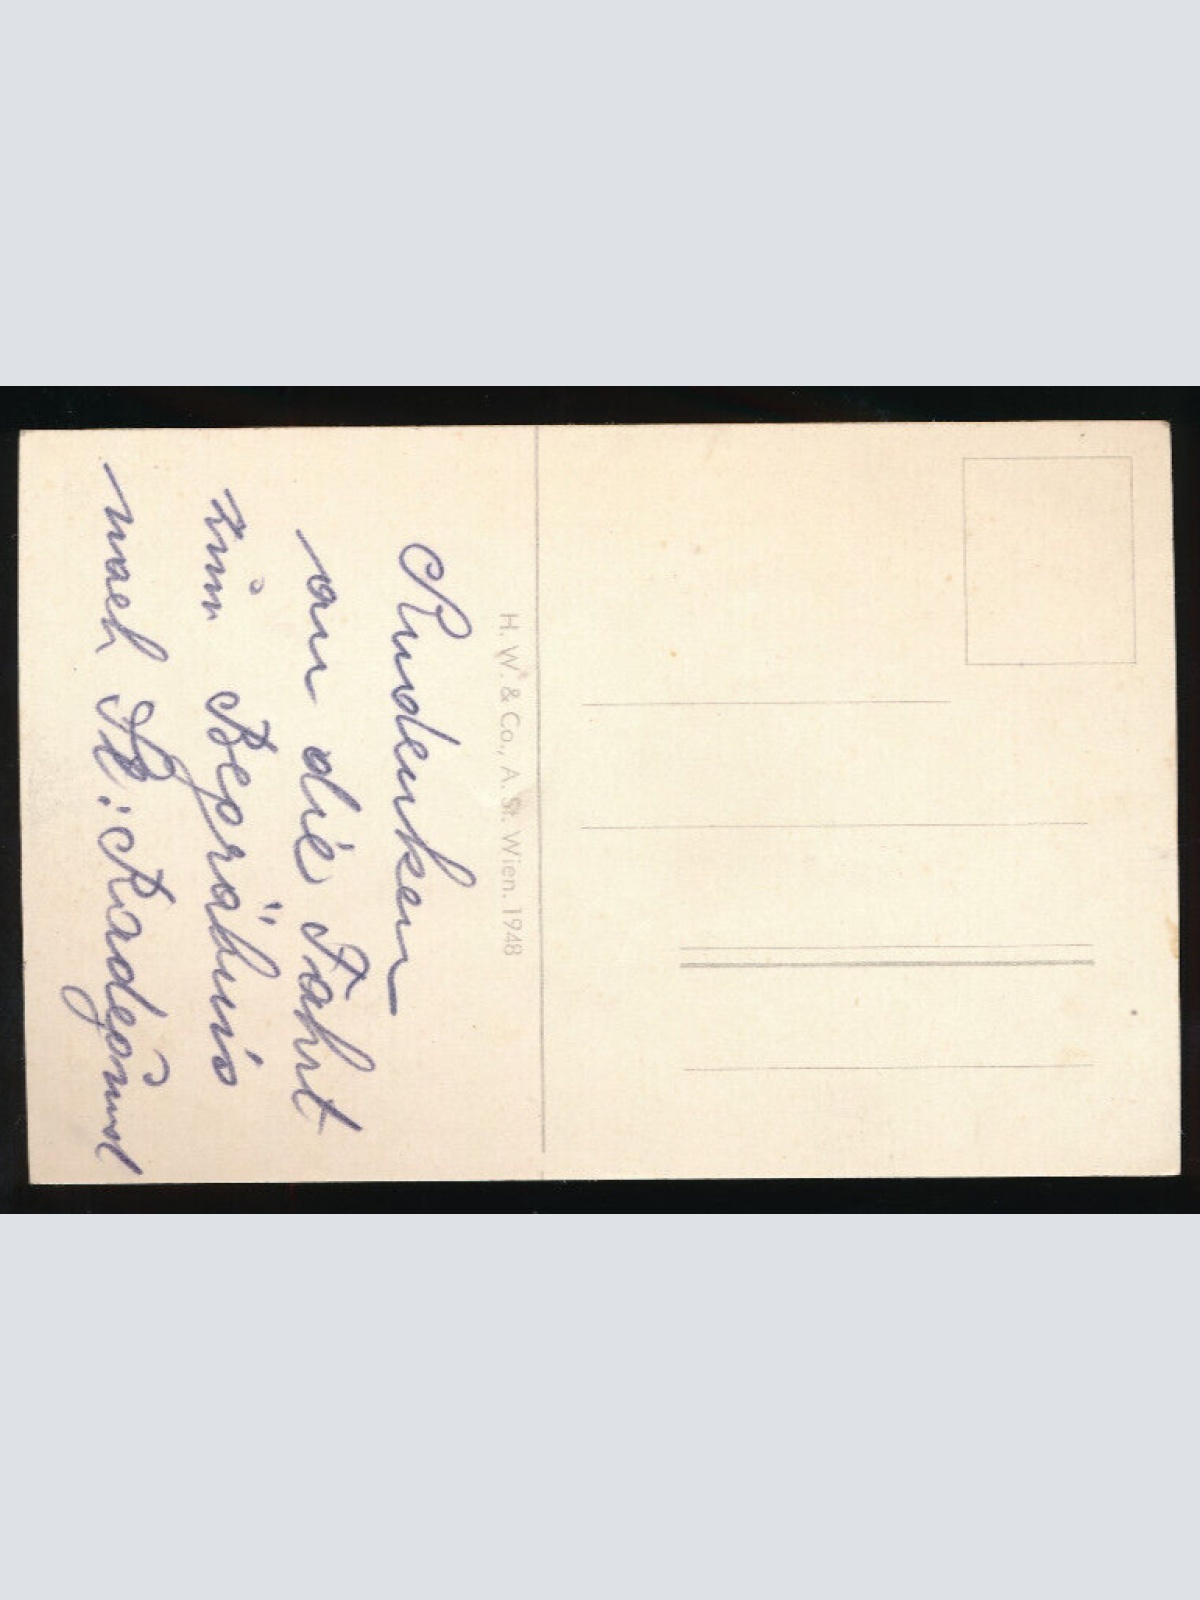 Andenken
an die Fahrt
zum Begräbnis
nach St. Radegund
H. W. & Co., A. St. Wien. 1948